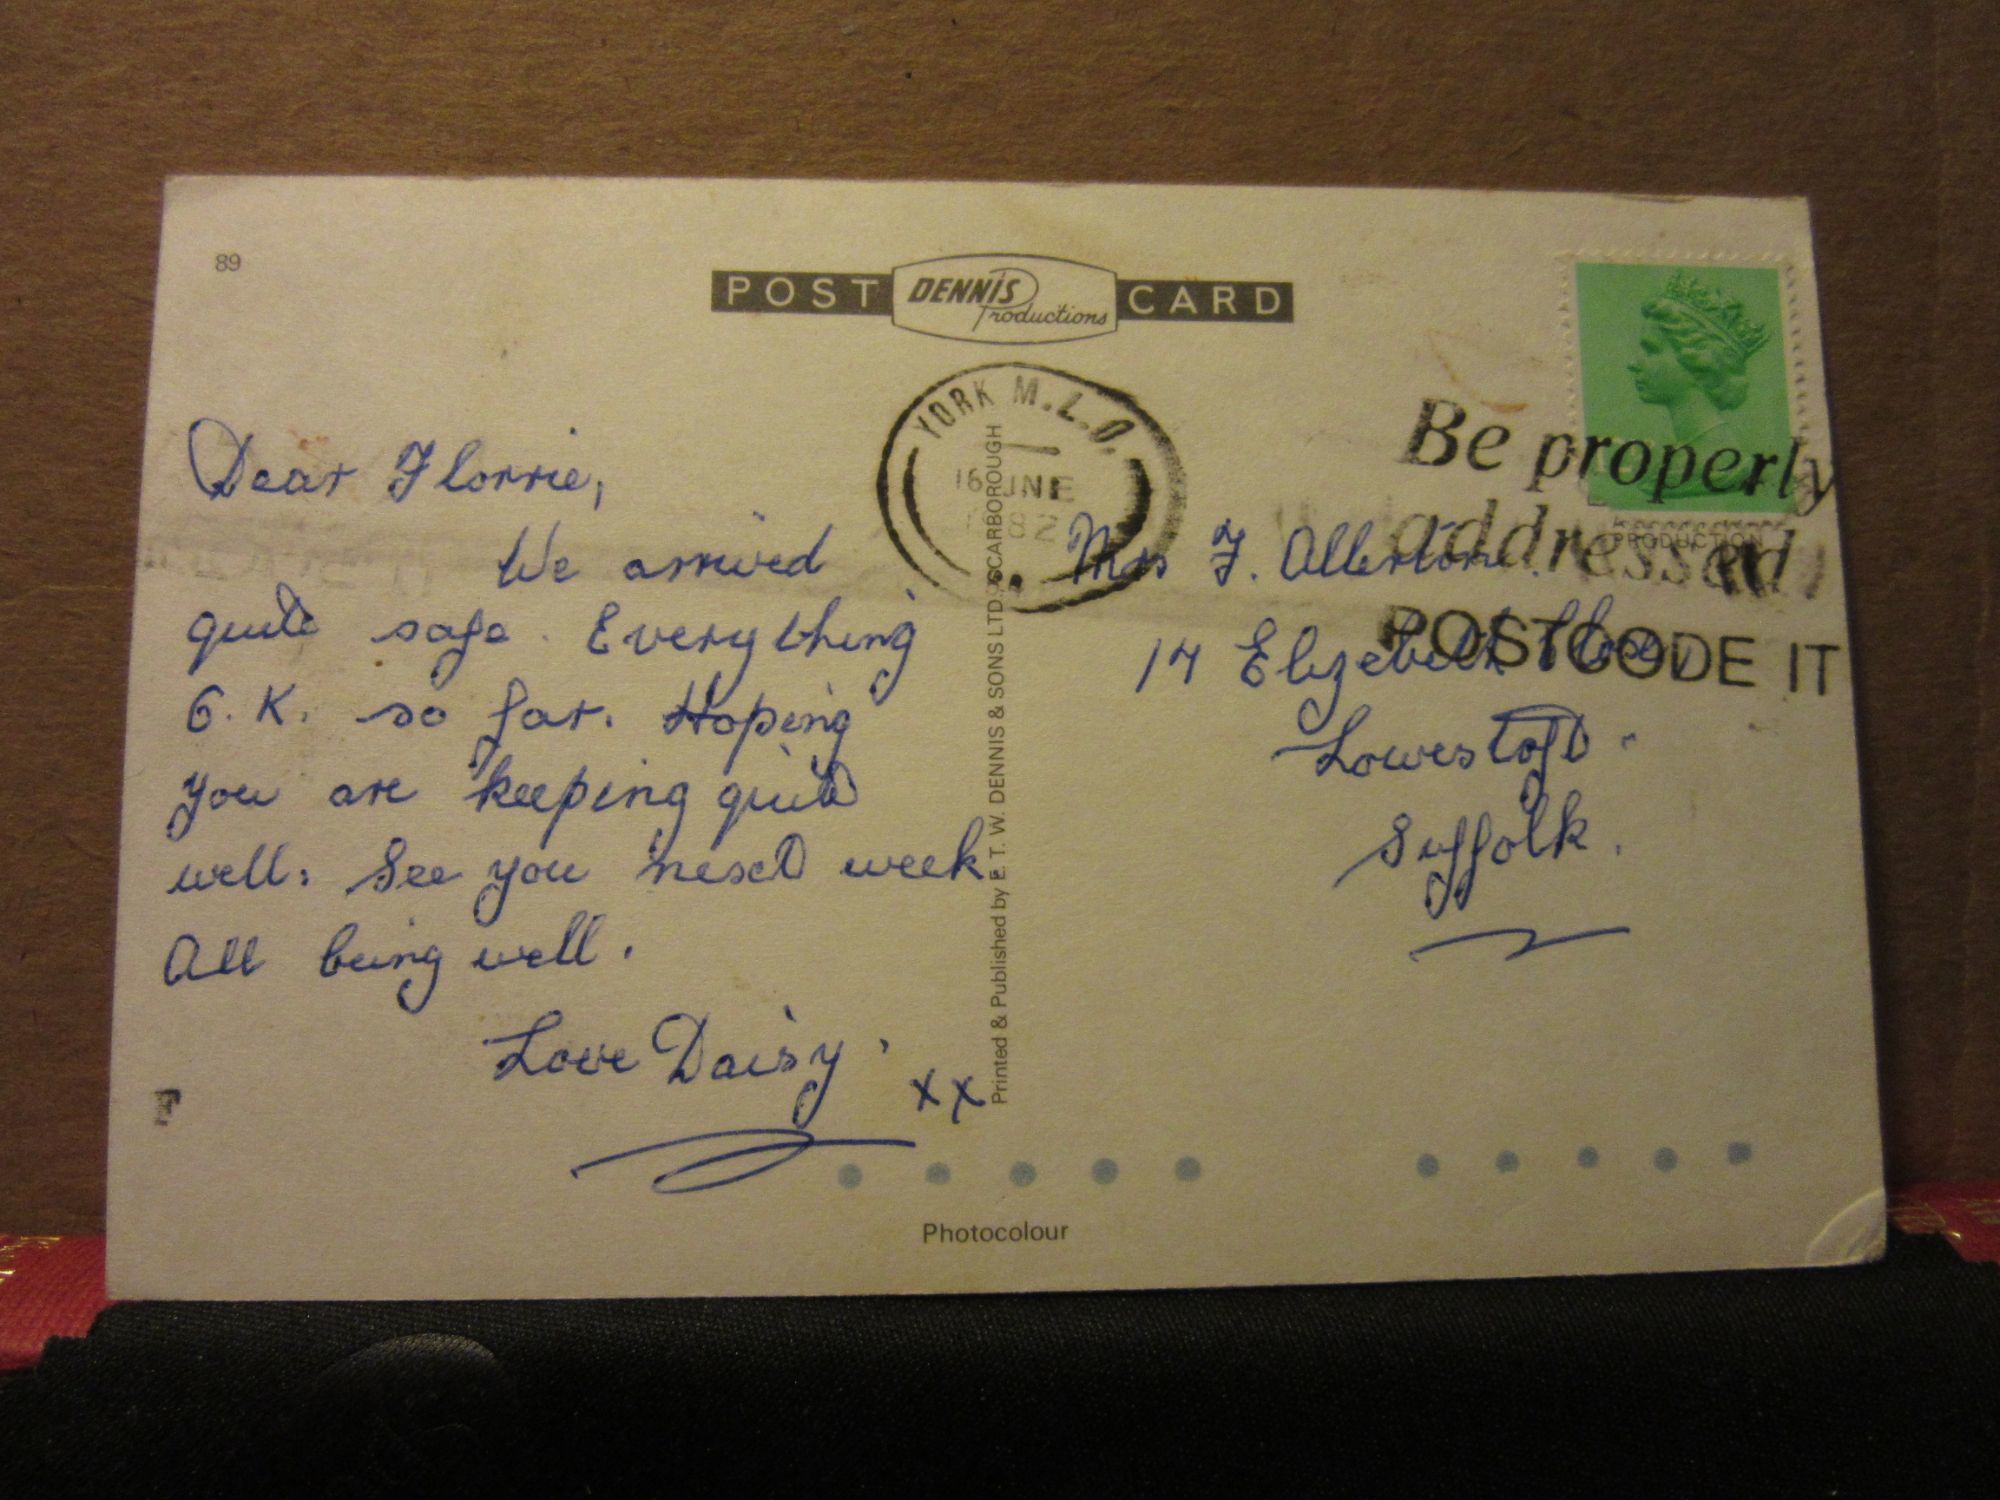 89
POST DENNIS Productions CARD
YORK M.L.O.
16 JNE
82
Be properly
addressed
POSTCODE IT
PRODUCTION
Dear Florrie,
We arrived
quite safe. Everything
O.K. so far. Hoping
you are keeping quite
well. See you next week
All being well.
Love Daisy.
xx
Mrs F. Allerton.
17 Elizabeth
Lowestoft.
Suffolk.
Printed & Published by E. T. W. DENNIS & SONS LTD., SCARBOROUGH
F
Photocolour